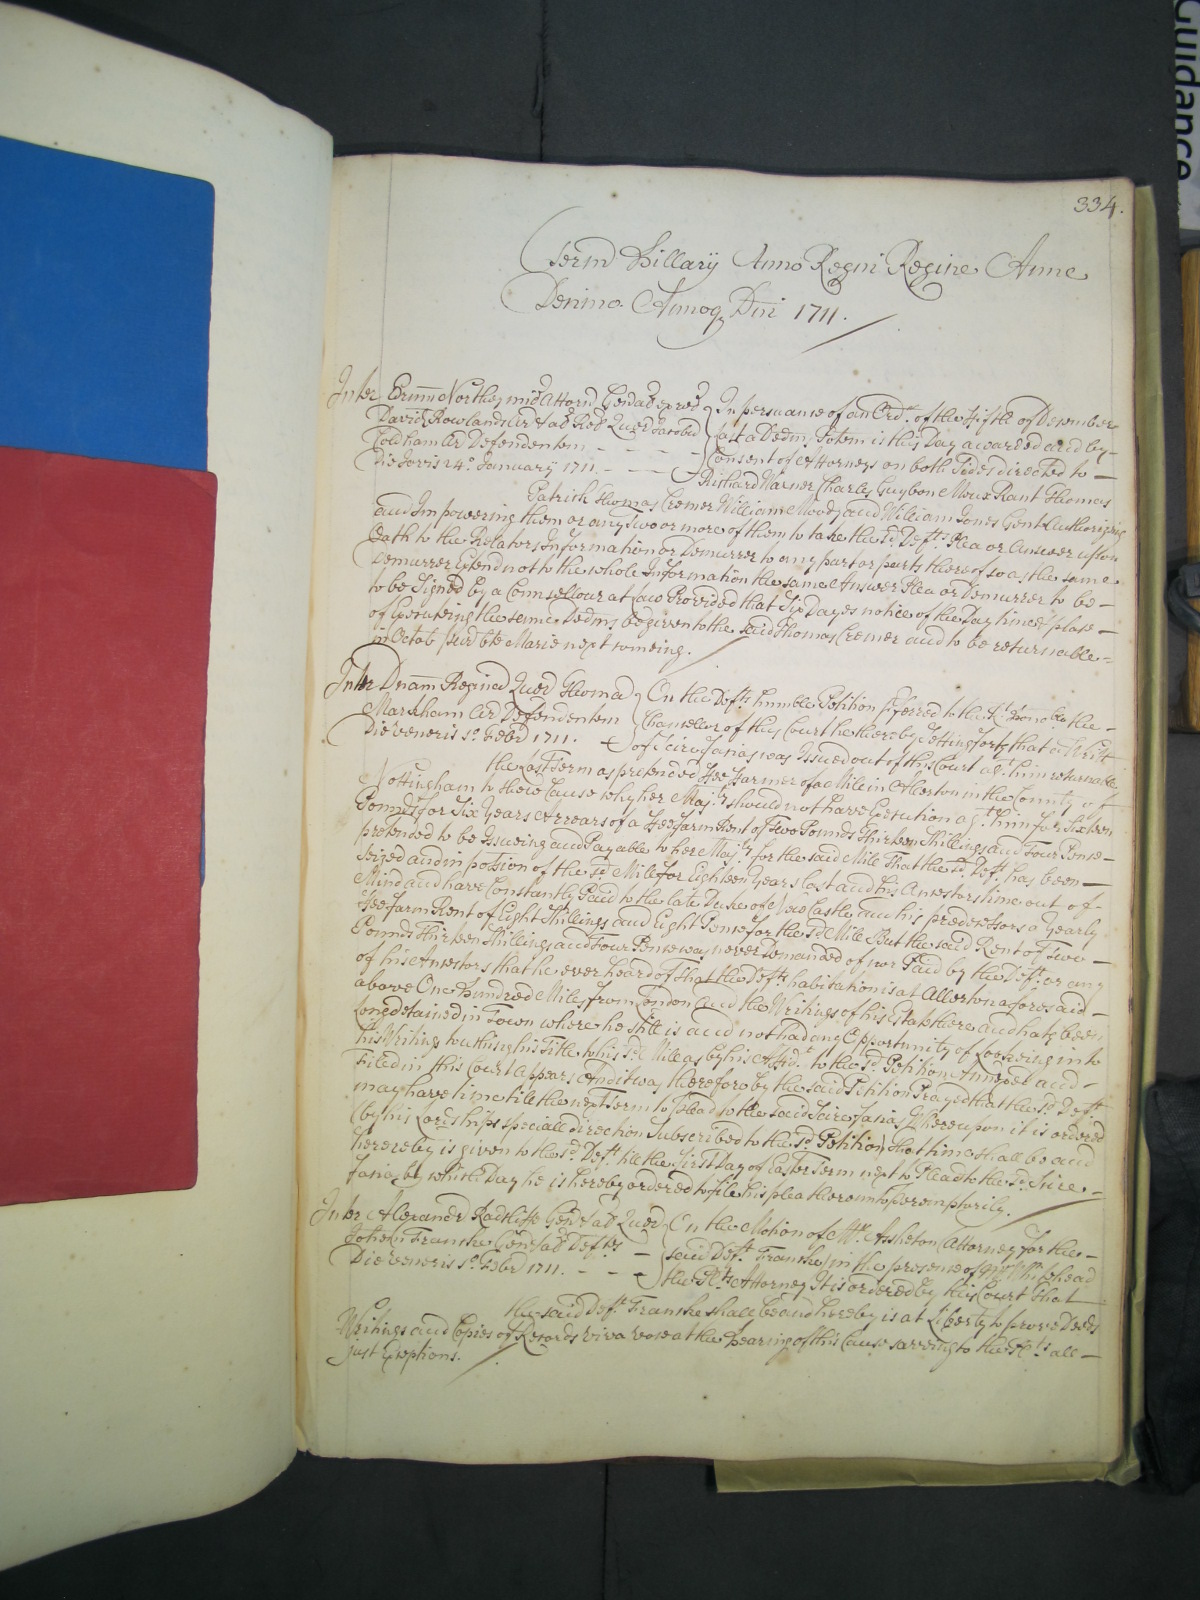 Guidance
334.
Term Hillary Anno Regni Regine Anne
Decimo Annoq Dni 1711.
Inter Northey Attorn
David Rowland Ar & al Quer Jacobu In persuance of an Ord. of the Fifth of December
Coldham Ar Defendentem last a Dedm. Potem is this Day awarded and by
Die Jovis 24o January 1711. Consent of Attorneys on both sides directed to
Richard Warner Charles Guybon Moux Rant Thomas
Patrick Thomas Cremer William Moody and William Jones Gent Authorizing
and Impowering them or any two or more of them to take the sd. Defts. Plea or Answer upon
Oath to the Relators Information or Demurrer to any part or parts thereof so as the same
Demurrer Extend not to the whole Information the same Answer Plea or Demurrer to be
to be Signed by a Counsellour at Law Provided that Six Dayes notice of the Day time & place
of Executeing the same Dedms. be given to the said Thomas Cremer and to be returnable
in Octab pur bte Marie next comeing.
Inter Dnam Reginam Quer Thomas On the Defts. humble Petition p'ferred to the Rt. Honoble the
Markham Ar Defendentem Chancellor of this Court he thereby Setting forth that a Writt
Die Veneris 1o Febr 1711. of Scire Facias was Issued out of this Court agt. him returnable
the last Term as pretended Fee Farmer of a Mile in Allerton in the County of
Nottingham to shew Cause why her Majty. should not have Execution agt. him for Sixteen
Pounds for Six Years Arrears of a Fee Farm Rent of Two Pounds Thirteen Shillings and Four Pence
pretended to be Issueing and Payable to her Majty. for the said Mile That the sd. Deft. has been
Seized and in possion of the sd. Mile for Eighteen Years last and his Ancestors time out of
Mind and have Constantly Paid to the late Duke of New Castle and his predecessors a Yearly
Fee Farm Rent of Eight Shillings and Eight Pence for the sd. Mile But the said Rent of Two
Pounds Thirteen Shillings and Four Pence was never Demanded of nor Paid by the Deft. or any
of his Ancestors that he ever heard of That the Defts. habitation is at Allerton aforesaid
above One Hundred Miles from London and the Writings of his Estate there and hath been
long detained in Town where he still is and not had any Opportunity of Looking into
his Writings touching his Title to his sd. Mile as by his Affidt. to the sd. Petition Annexed and
Filed in this Court Appears And it was therefore by the said Petition Prayed that the sd. Deft.
may have time till the next Term to plead to the said Scire Facias Whereupon it is ordered
(by his Lordships speciall direction Subscribed to the sd. Petition) that time shall be and
hereby is given to the sd. Deft. till the First Day of Easter Term next to Plead to the sd. Scire
facias by which Day he is hereby ordered to file his plea thereunto peremptorily.
Inter Alexandr Radcliffe Gen & al Quer On the Motion of Mr. Assheton (Attorney for the
Johem Franke Gen & al Deftes said Deft. Franke) in the presence of Mr. Whitehead
Die Veneris 1o Febr 1711. the Plts Attorney It is ordered by this Court that
the said Deft. Franke shall be and hereby is at Liberty to prove Deeds
Writings and Copies of Records viva voce at the hearing of this Cause saveing to the Plts all
just Exceptions.